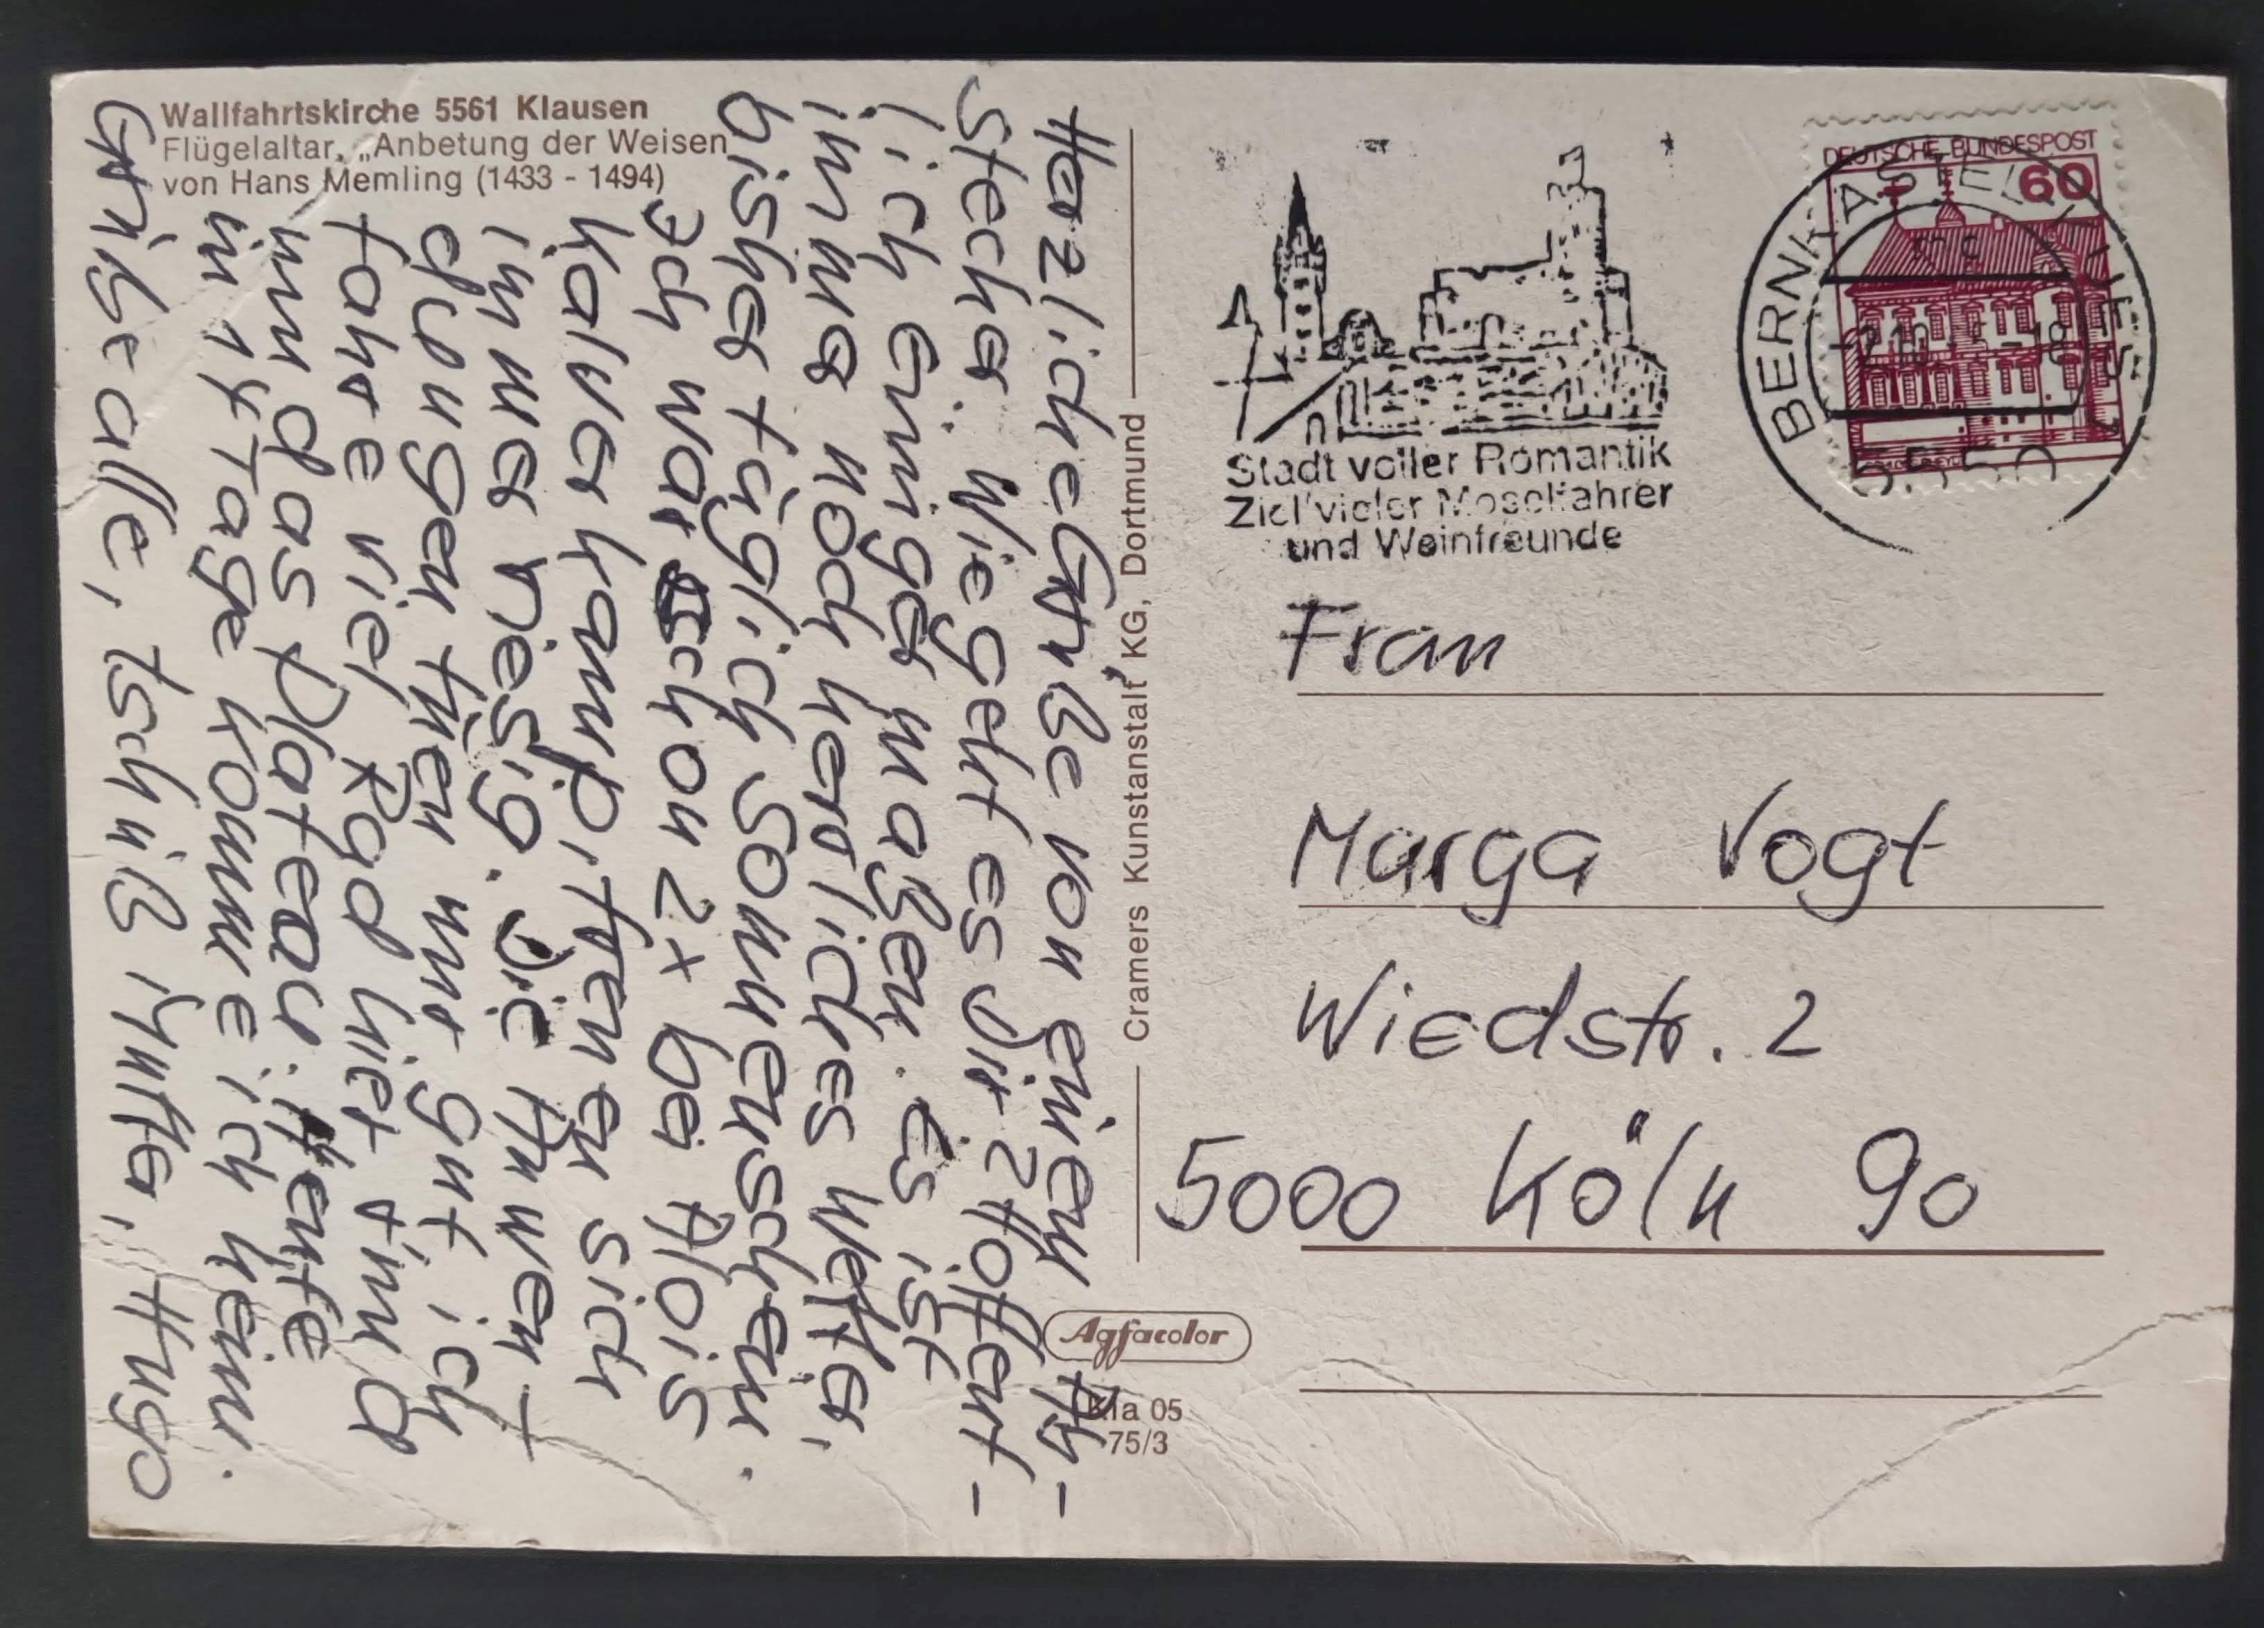 Wallfahrtskirche 5561 Klausen
Flügelaltar, „Anbetung der Weisen
von Hans Memling (1433 - 1494)
Herzliche Grüße von einem Ab-
stecher. Wie geht es Dir? Hoffent-
lich einiger maßen. Es ist
immer noch herrliches Wetter,
bisher täglich Sonnenschein.
Ich war schon 2x bei Alois
freuen sich
immer riesig. Die Anwen-
dungen tuen mir gut, ich
fahre viel Rad hier
um das Plateau. Heute
in 14 Tage komme ich heim.
Grüße alle, tschüß Mutta, Hugo
Cramers Kunstanstalt KG, Dortmund
Agfacolor
Kla 05
75/3
Stadt voller Romantik
Ziel vieler Moselfahrer
und Weinfreunde
DEUTSCHE BUNDESPOST
60
BERNKASTEL-KUES
5550
Frau
Marga Vogt
Wiedstr. 2
5000 Köln 90